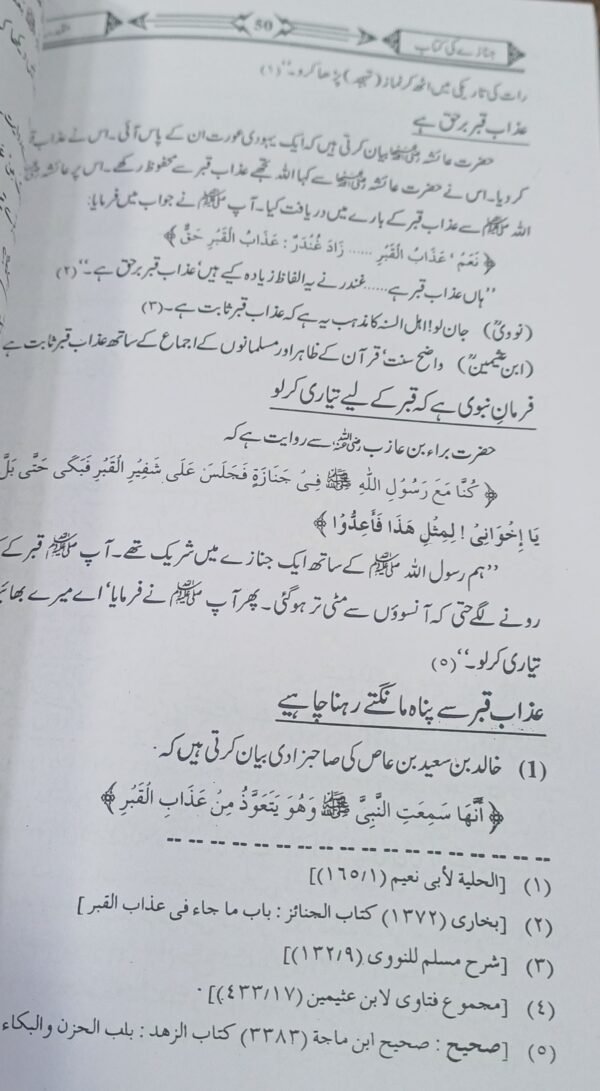 50
جنازے کی کتاب
رات کی تاریکی میں اٹھ کر نماز (تہجد) پڑھا کرو۔‘‘(۱)
عذاب قبر برحق ہے
حضرت عائشہ رضی اللہ عنہا بیان کرتی ہیں کہ ایک یہودی عورت ان کے پاس آئی۔ اس نے عذاب ق
کر دیا۔ اس نے حضرت عائشہ رضی اللہ عنہا سے کہا اللہ تجھے عذاب قبر سے محفوظ رکھے۔ اس پر عائشہ
اللہ ﷺ سے عذاب قبر کے بارے میں دریافت کیا۔ آپ ﷺ نے جواب میں فرمایا:
﴿ نَعَمْ ‘ عَذَابُ الْقَبْرِ ...... زَادَ غُنْدَرٌ : عَذَابُ الْقَبْرِ حَقٌّ ﴾
’’ہاں عذاب قبر ہے ..... غندر نے یہ الفاظ زیادہ کیے ہیں‘ عذاب قبر برحق ہے۔‘‘(۲)
(نوویؒ) جان لو! اہل السنہ کا مذہب یہ ہے کہ عذاب قبر ثابت ہے۔(۳)
(ابن عثیمینؒ) واضح سنت‘ قرآن کے ظاہر اور مسلمانوں کے اجماع کے ساتھ عذاب قبر ثابت ہے
فرمانِ نبوی ہے کہ قبر کے لیے تیاری کر لو
حضرت براء بن عازب رضی اللہ عنہ سے روایت ہے کہ
﴿ كُنَّا مَعَ رَسُوْلِ اللهِ ﷺ فِيْ جَنَازَةٍ فَجَلَسَ عَلٰى شَفِيْرِ الْقَبْرِ فَبَكٰى حَتّٰى بَلَّ
يَا إِخْوَانِيْ ! لِمِثْلِ هَذَا فَأَعِدُّوْا ﴾
’’ہم رسول اللہ ﷺ کے ساتھ ایک جنازے میں شریک تھے۔ آپ ﷺ قبر کے ک
رونے لگے حتی کہ آنسوؤں سے مٹی تر ہو گئی۔ پھر آپ ﷺ نے فرمایا‘ اے میرے بھائی
تیاری کر لو۔‘‘(۵)
عذاب قبر سے پناہ مانگتے رہنا چاہیے
(1) خالد بن سعید بن عاص کی صاحبزادی بیان کرتی ہیں کہ
﴿ أَنَّهَا سَمِعَتِ النَّبِيَّ ﷺ وَهُوَ يَتَعَوَّذُ مِنْ عَذَابِ الْقَبْرِ ﴾
(۱) [الحلية لأبى نعيم (۱۶۵/۱)]
(۲) [بخاری (۱۳۷۲) کتاب الجنائز : باب ما جاء فى عذاب القبر ]
(۳) [شرح مسلم للنووى (۱۳۲/۹)]
(٤) [مجموع فتاوى لابن عثيمين (٤٣٣/١٧)]
(٥) [صحيح : صحيح ابن ماجة (۳۳۸۳) كتاب الزهد : باب الحزن والبكاء